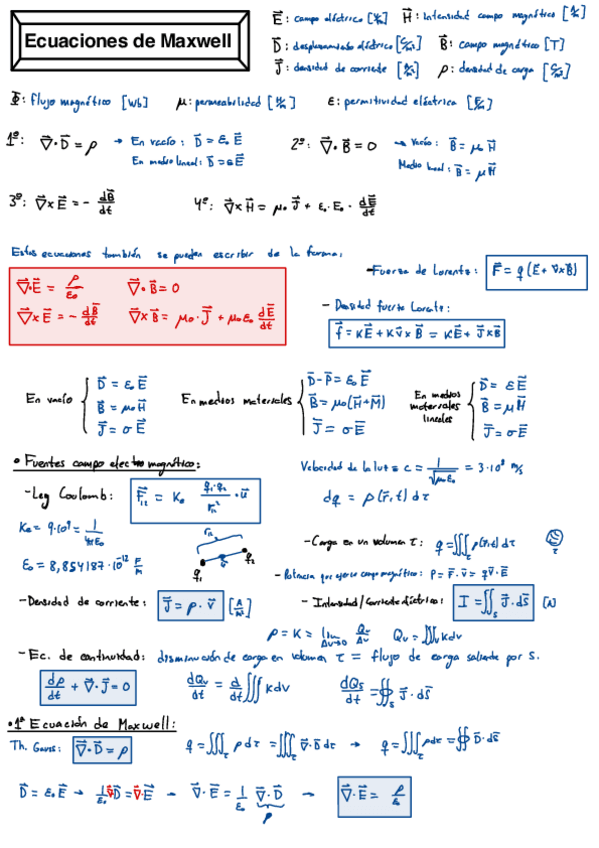 Ecuaciones de Maxwell
E⃗: campo eléctrico [V/m] H⃗: Intensidad campo magnético [A/m]
D⃗: desplazamiento eléctrico [C/m²] B⃗: campo magnético [T]
J⃗: densidad de corriente [A/m²] ρ: densidad de carga [C/m³]
Φ: flujo magnético [Wb] μ: permeabilidad [H/m] ε: permitividad eléctrica [F/m]
1º: ∇⃗·D⃗ = ρ → En vacío: D⃗ = ε₀ E⃗ 2º: ∇⃗·B⃗ = 0 → Vacío: B⃗ = μ₀ H⃗
En medio lineal: D⃗ = εE⃗ Medio lineal: B⃗ = μH⃗
3º: ∇⃗×E⃗ = - dB⃗/dt 4º: ∇⃗×H⃗ = μ₀ J⃗ + ε₀·E₀· dE⃗/dt
Estas ecuaciones también se pueden escribir de la forma:
∇⃗·E⃗ = ρ/ε₀ ∇⃗·B⃗ = 0
∇⃗×E⃗ = - dB⃗/dt ∇⃗×B⃗ = μ₀·J⃗ + μ₀ε₀ dE⃗/dt
-Fuerza de Lorentz: F⃗ = q(E⃗ + v⃗×B⃗)
- Densidad fuerza Lorentz:
f⃗ = κE⃗ + κv⃗×B⃗ = κE⃗ + J⃗×B⃗
En vacío { D⃗ = ε₀E⃗ B⃗ = μ₀H⃗ J⃗ = σE⃗
En medios materiales { D⃗-P⃗ = ε₀E⃗ B⃗ = μ₀(H⃗+M⃗) J⃗ = σE⃗
En medios materiales lineales { D⃗ = εE⃗ B⃗ = μH⃗ J⃗ = σE⃗
• Fuentes campo electromagnético:
Velocidad de la luz = c = 1/√(μ₀ε₀) = 3·10⁸ m/s
-Ley Coulomb: F⃗₁₂ = Ke q₁·q₂/r₁₂² ·u⃗
dq = ρ(r⃗,t) dτ
Ke = 9·10⁹ = 1/4πε₀
r₁₂
q₁ q₂
-Carga en un volumen τ: q = ∭τ ρ(r⃗,t) dτ
τ
ε₀ = 8,854187·10⁻¹² F/m
- Potencia que ejerce campo magnético: P = F⃗·v⃗ = qv⃗·E⃗
-Densidad de corriente: J⃗ = ρ·v⃗ [A/m²]
- Intensidad/Corriente eléctrica: I = ∬s J⃗·dS⃗ [A]
ρ = K = lim Δv→0 Qv/Δv Qv = ∭ kdv
-Ec. de continuidad: disminución de carga en volumen τ = flujo de carga saliente por S.
dρ/dt + ∇⃗·J⃗ = 0 dQv/dt = d/dt ∭ kdv dQs/dt = ∯s J⃗·dS⃗
• 1ª Ecuación de Maxwell:
Th. Gauss: ∇⃗·D⃗ = ρ q = ∭τ ρdτ = ∭τ ∇⃗·D⃗ dτ → q = ∭τ ρdτ = ∯ D⃗·dS⃗
D⃗ = ε₀E⃗ → 1/ε₀ ∇⃗D⃗ = ∇⃗·E⃗ → ∇⃗·E⃗ = 1/ε₀ ∇⃗·D⃗ → ∇⃗·E⃗ = ρ/ε₀
ρ